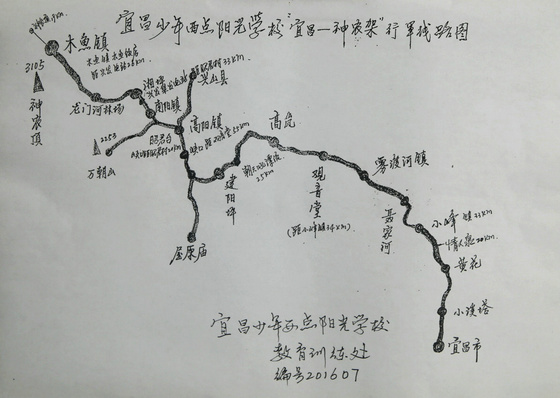 宜昌少年西点阳光学校"宜昌—神农架"行军线路图
木鱼镇
3105
神农顶
龙门河林场
湘坪
南阳镇
兴山县
高阳镇
昭君
2253
万朝山
建阳坪
屈原庙
高岚
25km
观音堂
(距小峰镇34km)
雾渡河镇
聂家河
小峰
黄花
小溪塔
宜昌市
宜昌少年西点阳光学校
教育训练处
编号201607